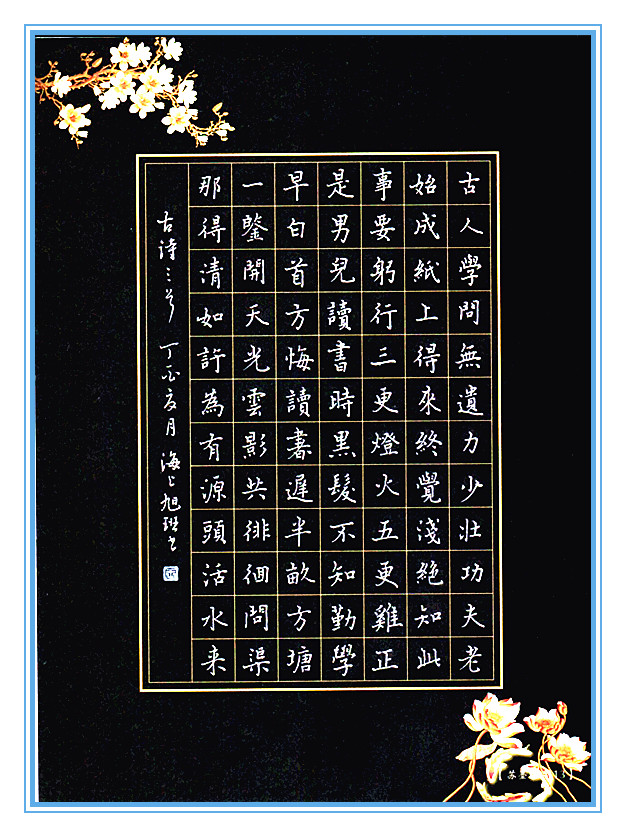 古人學問無遺力少壯功夫老
始成紙上得來終覺淺絕知此
事要躬行三更燈火五更雞正
是男兒讀書時黑髮不知勤學
早白首方悔讀書遲半畝方塘
一鑒開天光雲影共徘徊問渠
那得清如許為有源頭活水来
古诗三首 丁酉夏月 海上旭